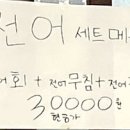 전어 세트메
회 + 전어무침 + 전어
30000원
현금가